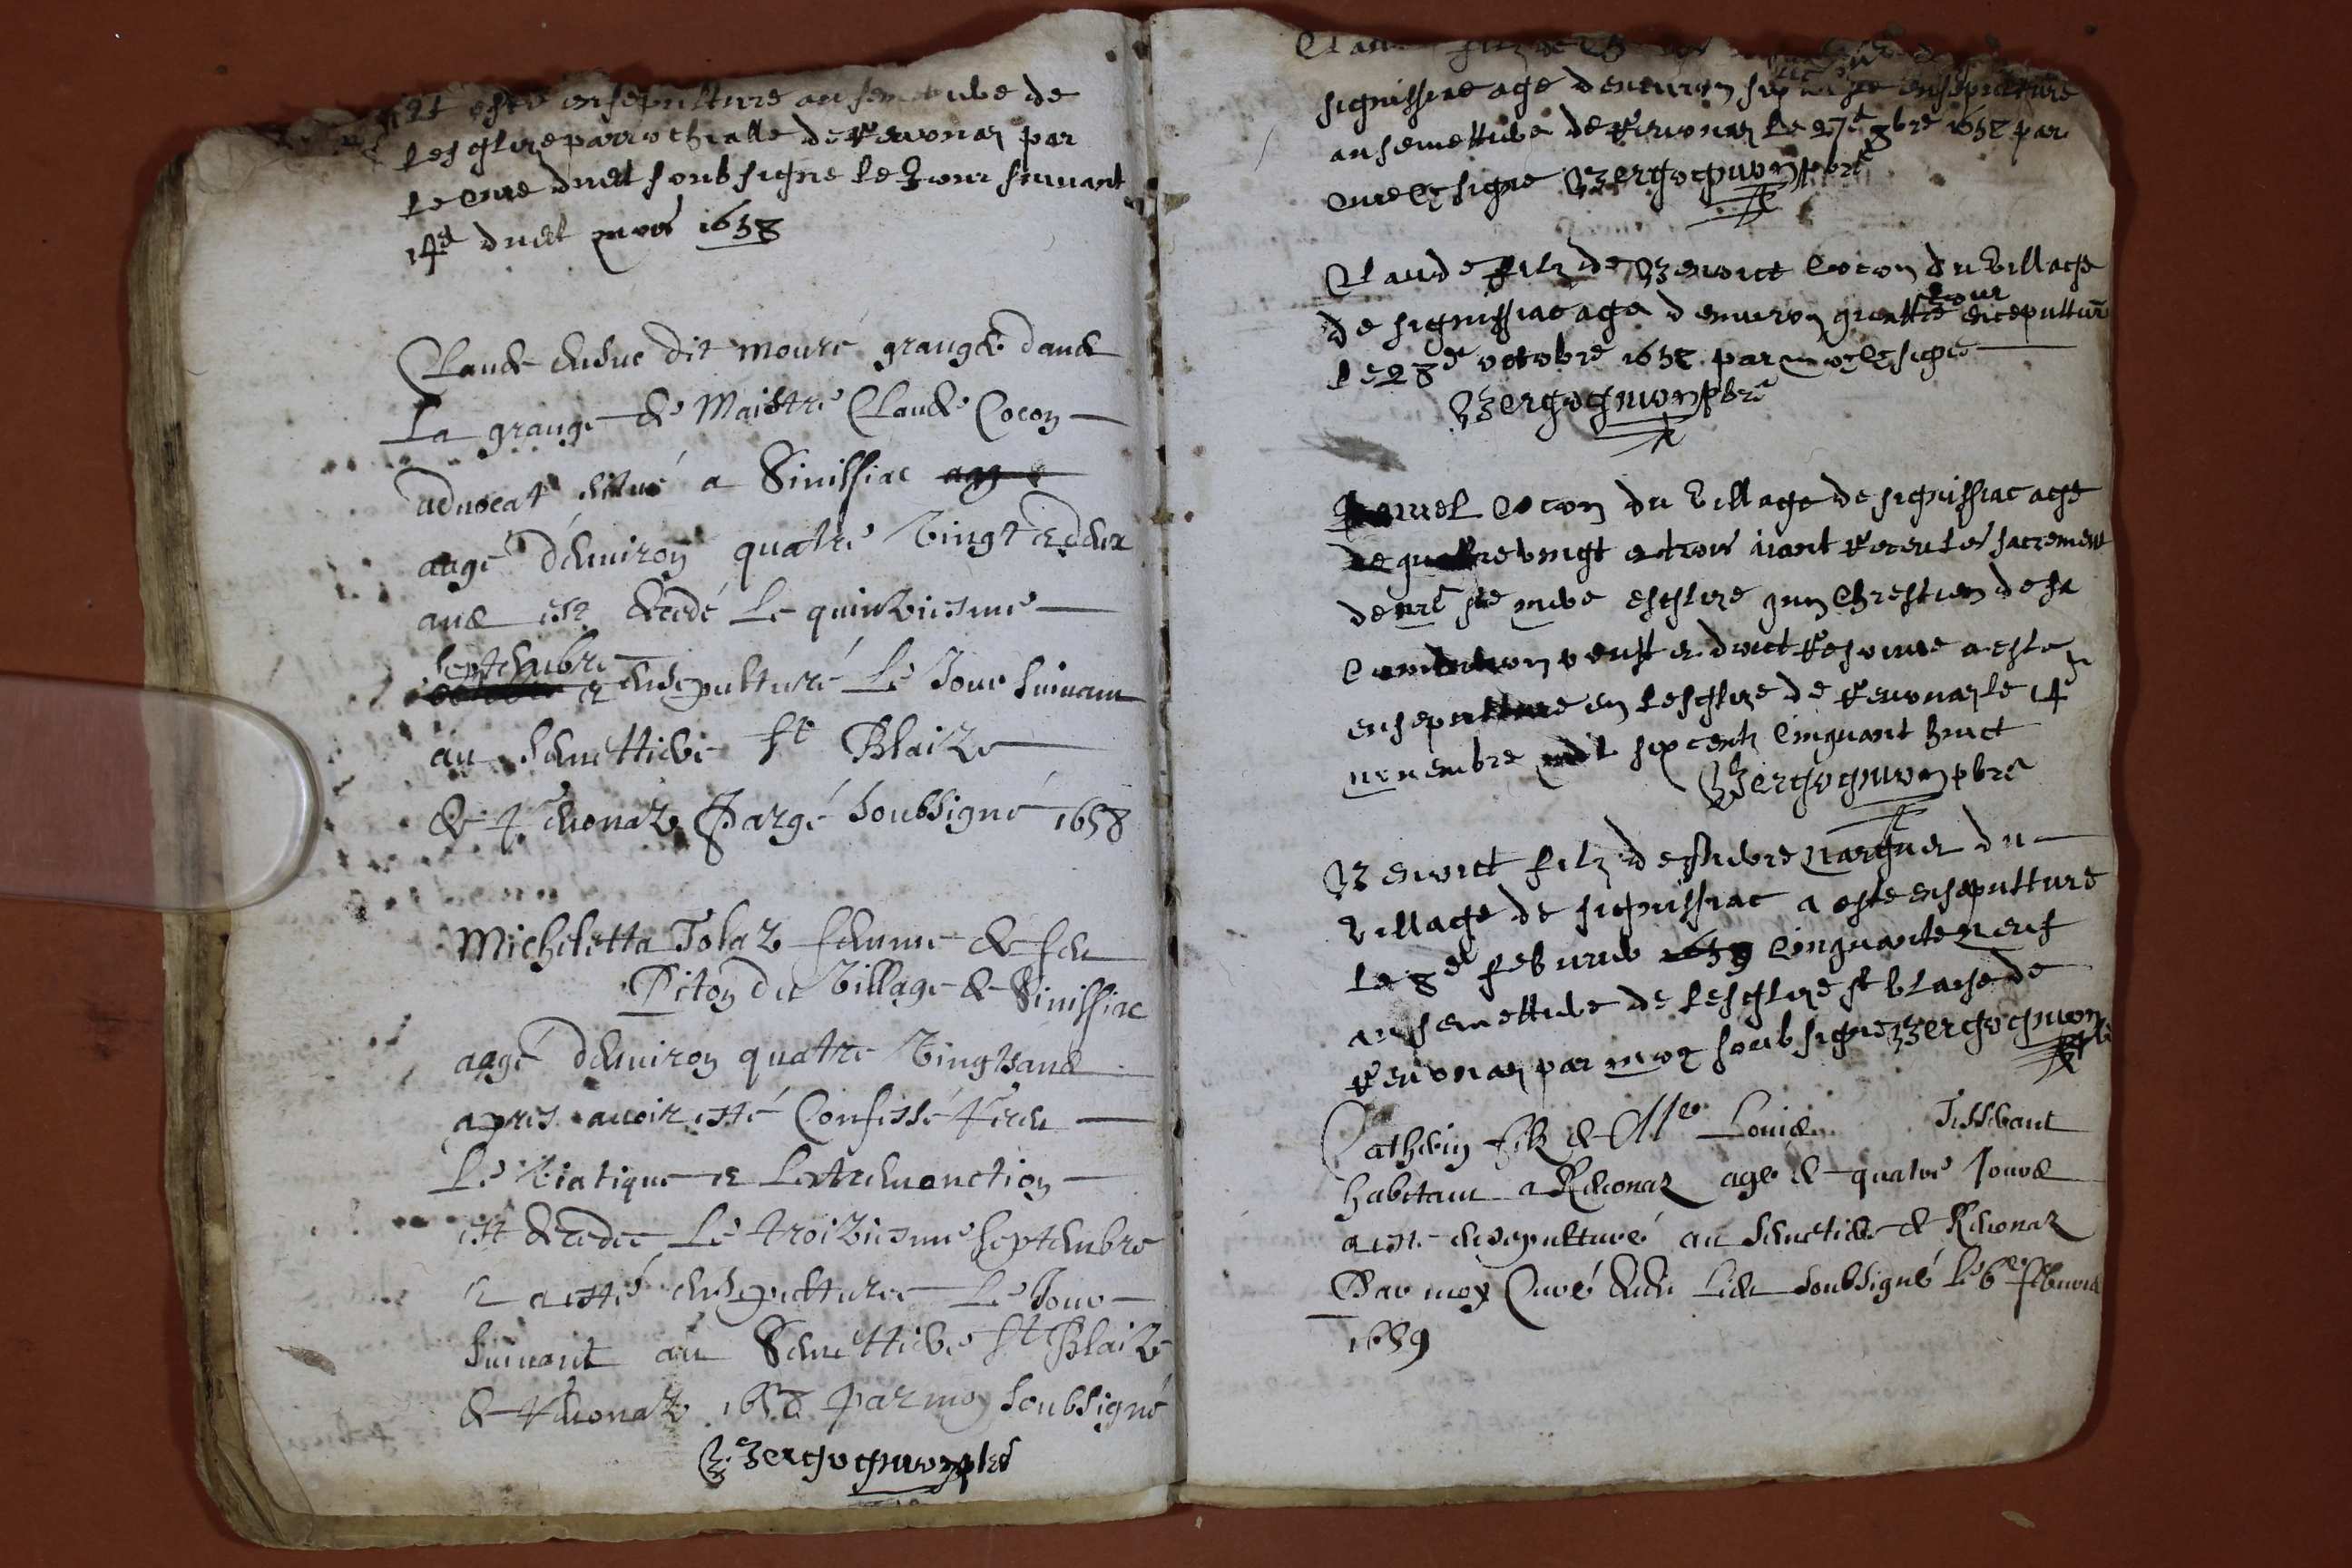 esté ensepulturé au semetiere de
lesglize parrochialle de Revonaz par
le Curé dudt soubsigné le Jour suivant
14e dudt mois 1658
Claude dit mouré granger dans
La grange de Maistre Claude Cocon
advocat situé a Sinissiac
aagé d'environ quatre vingt et deux
ans est decedé le quinziesme
septembre
et ensepulturé Le Jour suivant
au semettiere St Blaize
de Revonaz Par soubsigné 1658
Micheletta Tolaz femme de feu
Piton du Village de Sinissiac
aagé d'environ quatre vingts ans
apres avoir esté Confessé receu
Le Viatique et Lextremonction
est decedee Le troiziesme septembre
et a esté ensepulturee Le Jour
suivant au Semettiere St Blaize
de Revonaz 1658 par moy soubsigné
Bergognion pbre
Claude filz de
signissiac age denviron ensepulture
au semettiere de Revonaz le 27e 8bre 1658 par
Curé Bergognion pbre
Claude filz de Benoict Cocon du Village
de signissiac age denviron quattre Jour ensepulture
le 28e octobre 1658 par moy
Bergognion pbre
Cocon du Village de signissiac age
de quatre vingt et trois aiant Receu les sacrement
de nre ste mere esglize Chrestien de sa
Condition a esté
ensepulture en lesglize de Revonaz le 14e
novembre mil six centz Cinquant huict
Bergognion pbre
Benoict filz de du
Village de signissiac a esté ensepulture
le 8e febvrier 1659 Cinquante neuf
au semettiere de lesglize St blaise de
Revonaz par moy soubsigne Bergognion pbre
Catherin filz de Me Louis Tisserant
habitant a Revonaz age de quatre Jours
a esté ensepulturé au semetiere de Revonaz
Par moy Curé dudit lieu soubsigné le 6e febvrier
1659